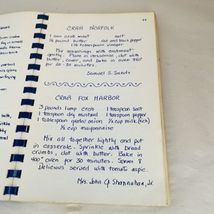 CRAB NORFOLK
1 pound crab meat salt
1/4 pound butter red and black pepper
1 1/2 tablespoon vinegar
Mix seasonings with crabmeat
gently. Place in casserole, dot with
butter, cover, and bake in oven 350°
for 20-30 minutes.
Samuel S. Sands
CRAB FOX HARBOR
3 pounds lump crab 1 teaspoon salt
1 teaspoon dry mustard 1 teaspoon pepper
1 tablespoon grated onion 1/2 cup milk
1/2 cup mayonnaise
Mix all together lightly and put
in casserole. Sprinkle with bread
crumbs, dot with butter. Bake in
400° oven for 30 minutes. Serves
Delicious served with tomato aspic.
Mrs. John G. Shannahan, Jr.